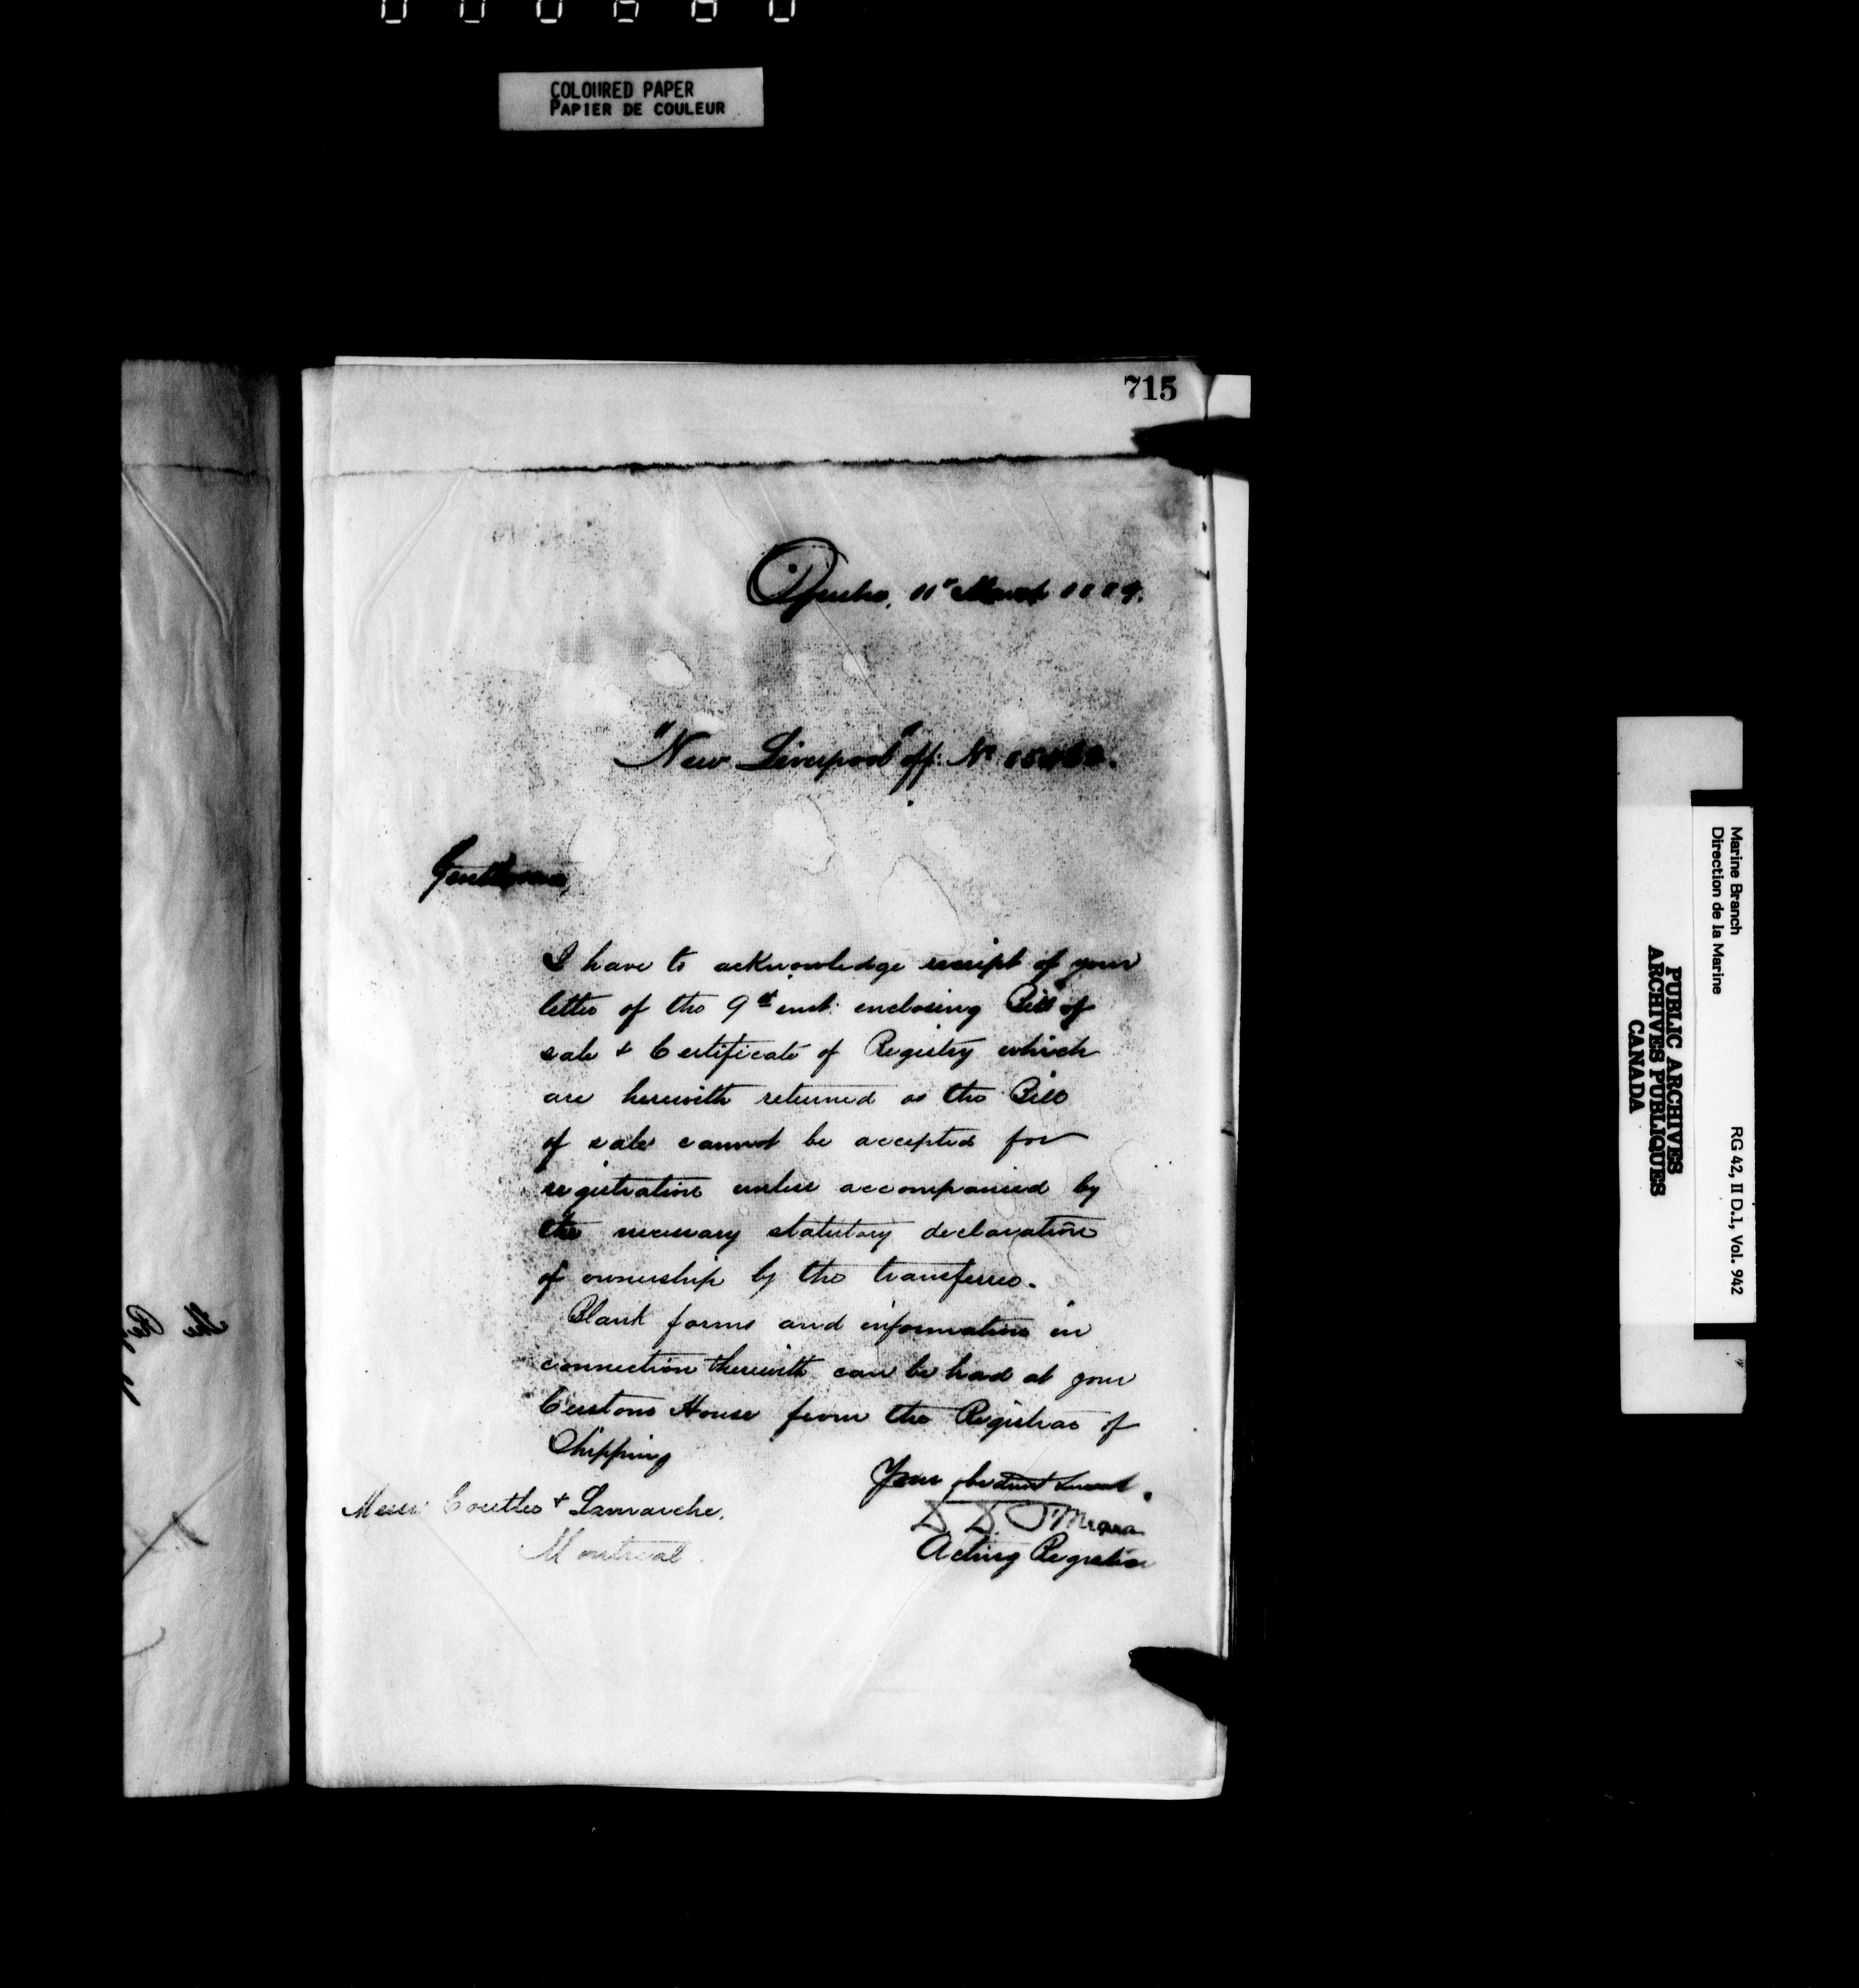 COLOURED PAPER
PAPIER DE COULEUR
715
Quebec, 11th March 1889.
"New Liverpool" off: No
Gentlemen,
I have to acknowledge receipt of your
letter of the 9th inst: enclosing Bill of
sale & Certificate of Registry which
are herewith returned as the Bill
of sale cannot be accepted for
registration unless accompanied by
the necessary statutory declaration
of ownership by the transferee.
Blank forms and information in
connection therewith can be had at your
Customs House from the Registrar of
Shipping
Your obedient Servant.
D. D. O'Meara
Acting Registrar
Messrs & Lamarche,
Montreal.
the
Marine Branch
Direction de la Marine
RG 42, II D.1, Vol. 942
PUBLIC ARCHIVES
ARCHIVES PUBLIQUES
CANADA